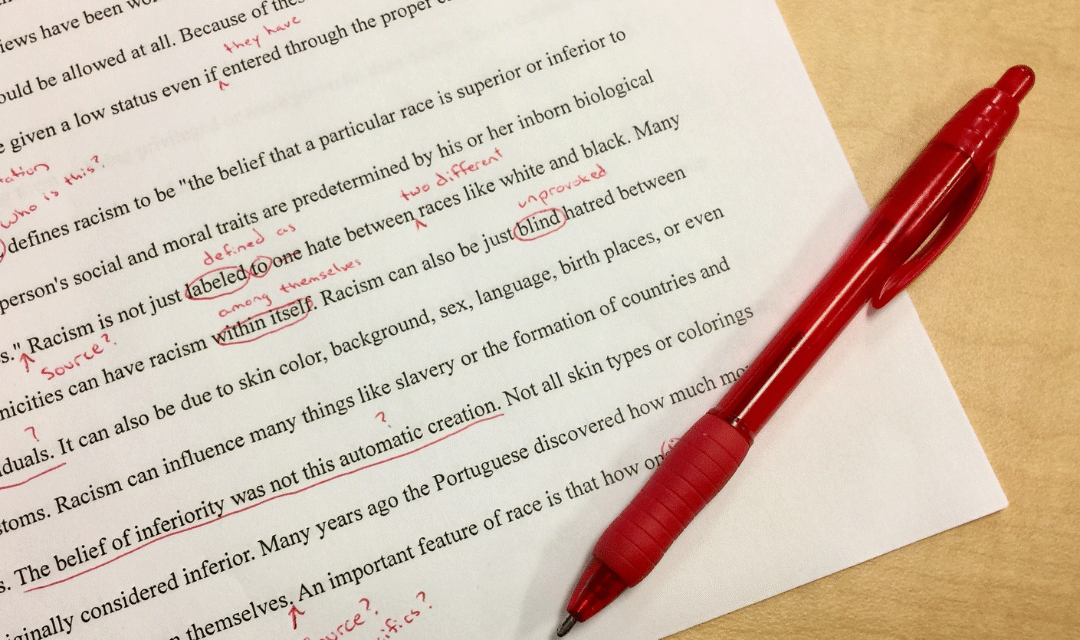 iews have been
ould be allowed at all. Because of
they have
e given a low status even if entered through the proper
who is this?
defines racism to be "the belief that a particular race is superior or inferior to
person's social and moral traits are predetermined by his or her inborn biological
defined as
two different
s." Racism is not just labeled to one hate between races like white and black. Many
source?
among themselves
unprovoked
nicities can have racism within itself. Racism can also be just blind hatred between
?
duals. It can also be due to skin color, background, sex, language, birth places, or even
stoms. Racism can influence many things like slavery or the formation of countries and
?
s. The belief of inferiority was not this automatic creation. Not all skin types or colorings
iginally considered inferior. Many years ago the Portuguese discovered how much
n themselves. An important feature of race is that how
ource?
cifics?